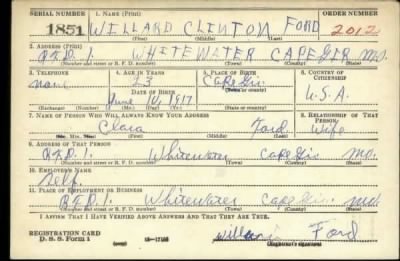 SERIAL NUMBER 1. NAME (Print) ORDER NUMBER
1851 WILLARD CLINTON FORD 2012
(First) (Middle) (Last)
2. ADDRESS (Print)
R.F.D. 1. WHITEWATER CAPE GIR MO.
(Number and street or R. F. D. number) (Town) (County) (State)
3. TELEPHONE 4. AGE IN YEARS 5. PLACE OF BIRTH 6. COUNTRY OF CITIZENSHIP
none 23 Cape Gir.
DATE OF BIRTH (Town or county)
June 10, 1917 U.S.A.
(Exchange) (Number) (Mo.) (Day) (Yr.) (State or country)
7. NAME OF PERSON WHO WILL ALWAYS KNOW YOUR ADDRESS 8. RELATIONSHIP OF THAT PERSON
Clara Ford Wife
(Mr., Mrs., Miss) (First) (Middle) (Last)
9. ADDRESS OF THAT PERSON
R.F.D. 1. Whitewater Cape Gir. Mo.
(Number and street or R. F. D. number) (Town) (County) (State)
10. EMPLOYER'S NAME
Self.
11. PLACE OF EMPLOYMENT OR BUSINESS
R.F.D. 1. Whitewater Cape Gir. Mo.
(Number and street or R. F. D. number) (Town) (County) (State)
I AFFIRM THAT I HAVE VERIFIED ABOVE ANSWERS AND THAT THEY ARE TRUE.
REGISTRATION CARD
D. S. S. Form 1 (over) Willard Ford
(Registrant's signature)